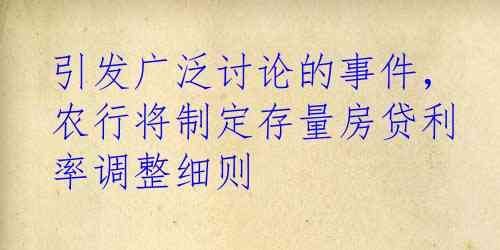 引发广泛讨论的事件，
农行将制定存量房贷利
率调整细则